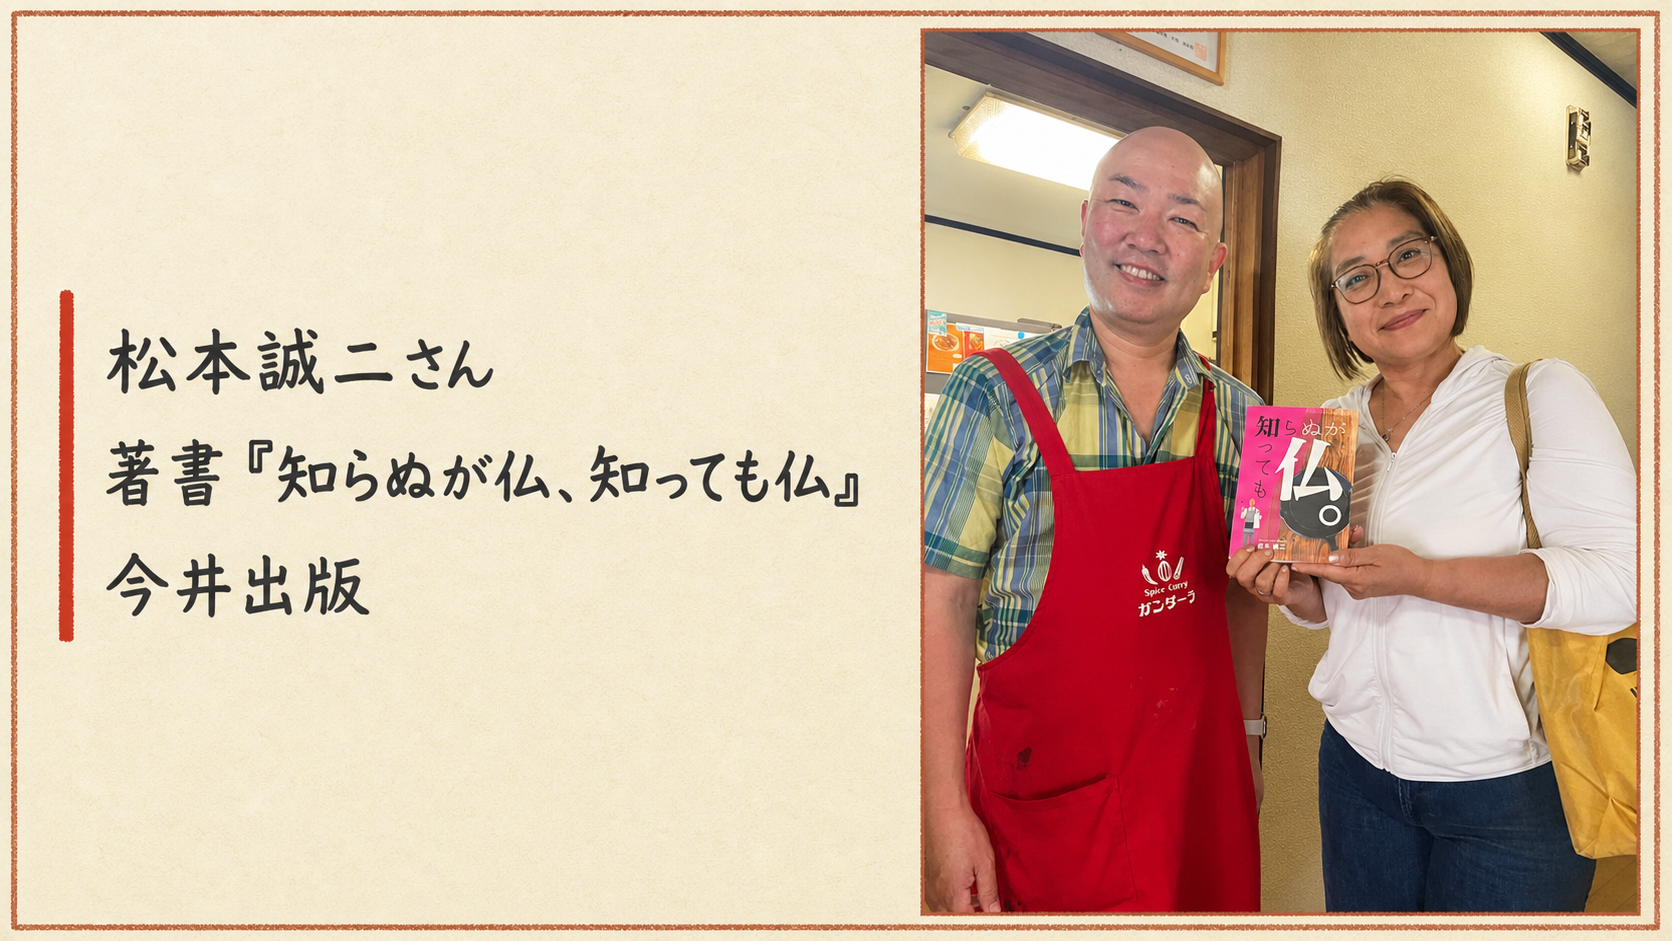 松本誠二さん
著書『知らぬが仏、知っても仏』
今井出版
知らぬが
仏。
っても
Spice Curry
ガンダーラ